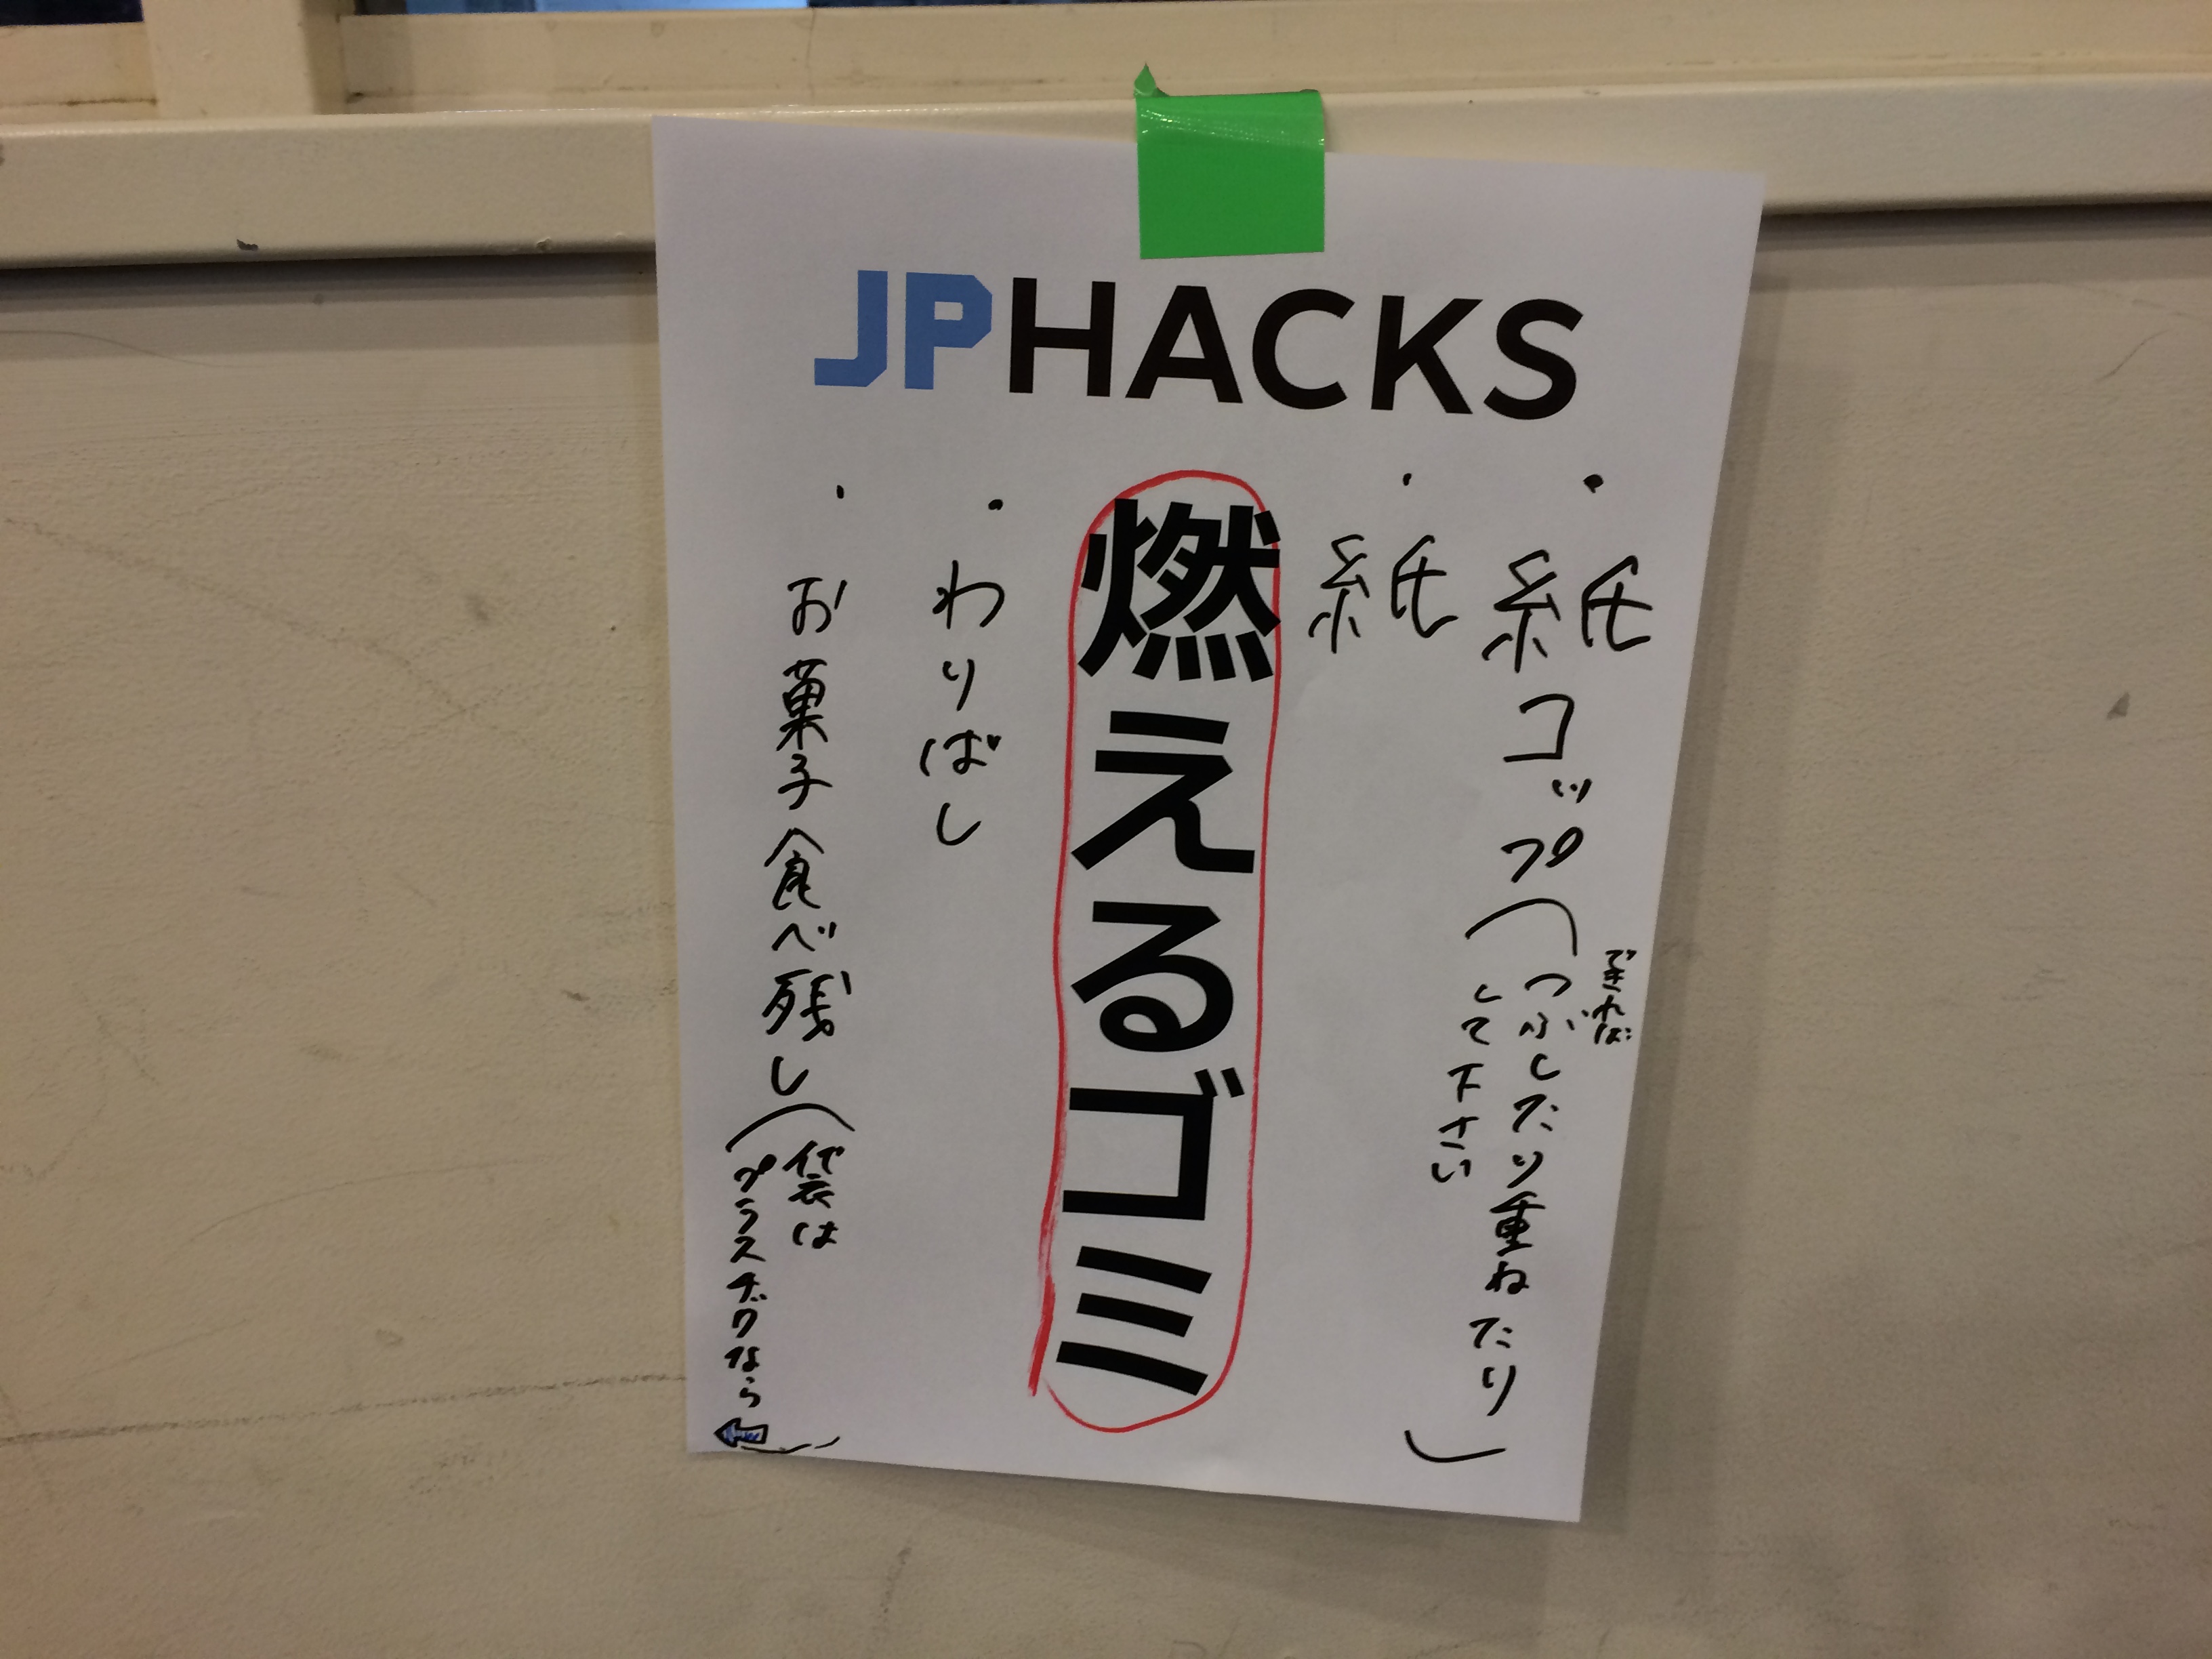 JPHACKS
・紙コップ(できれば
つぶしたり重ねたり
して下さい)
・紙
燃えるゴミ
・わりばし
・お菓子食べ残し(袋は
プラスチックなら⇦)